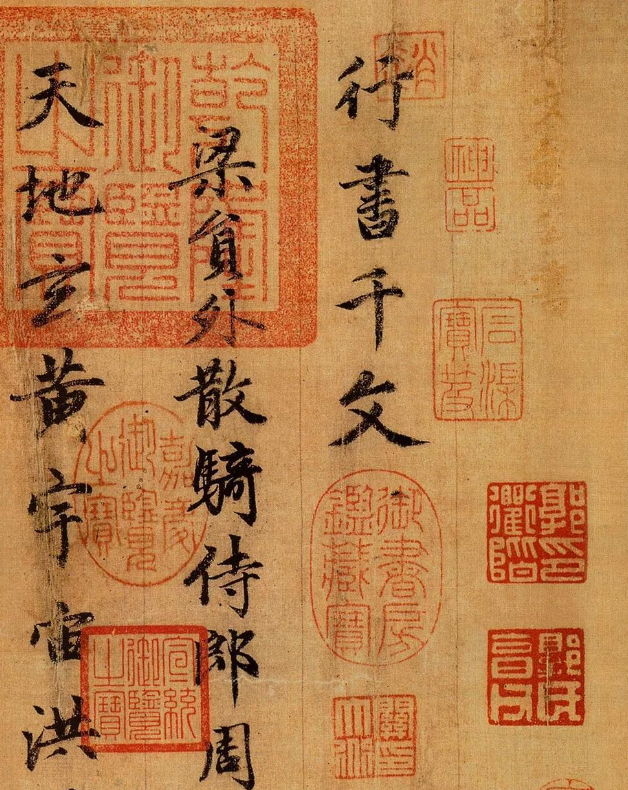 神品
石渠寶笈
行書千文
御書房鑑藏寶
梁貟外散騎侍郎周
乾隆御覽之寶
嘉慶御覽之寶
宣統御覽之寶
天地玄黄宇宙洪